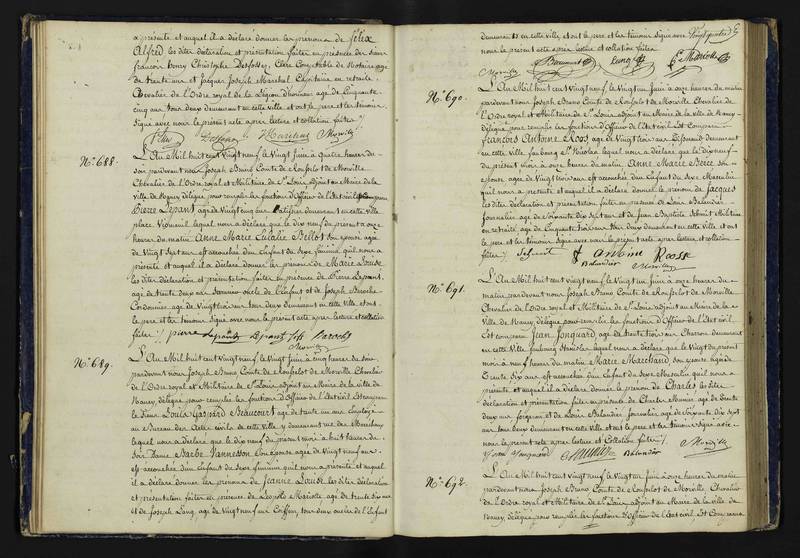 a présenté et auquel il a déclaré donner les prénoms de félix
Alfred les dites déclaration et présentation faites en présence de Sieur
françois henry Christophe Desfosses, Clerc Comptable de Notaire agé
de trente ans et Jacques Joseph Marchal Capitaine en retraite
Chevalier de l'Ordre royal de la Légion d'honneur agé de Cinquante
cinq ans tous deux demeurant en cette ville et ont le père et les témoins
Signé avec nous le présent acte après lecture et collation faites
Marchal Morville
N°. 688.
L'An Mil huit cent Vingt neuf le Vingt Juin à quatre heures du
soir pardevant nous Joseph Bruno Comte de Rousselot de Morville
Chevalier de l'Ordre royal et Militaire de St. Louis adjoint au Maire de la
ville de Nancy délégué pour remplir les fonctions d'Officier de l'état civil Est comparu
Pierre Lepant agé de Vingt cinq ans Patissier demeurant en cette ville
place lequel nous a déclaré que le dix neuf du présent à onze
heures du matin Anne Marie Eulalie Bellot son épouse agée
de Vingt Sept ans est accouchée d'un Enfant du Sexe féminin qu'il nous a
présenté et auquel il a déclaré donner les prénoms de Marie Louise
les dites déclaration et présentation faites en présence de Pierre Lepant
agé de trente deux ans oncle de l'Enfant et de Joseph Baroche
Cordonnier agé de Vingt trois ans tous deux demeurant en cette ville et ont
le père et les témoins Signé avec nous le présent acte après lecture et collation
faites
pierre Lepant Lepant Baroche
Morville
N°. 689.
L'An Mil huit cent Vingt neuf le Vingt Juin à cinq heures du soir
pardevant nous Joseph Bruno Comte de Rousselot de Morville Chevalier
de l'Ordre royal et Militaire de St. Louis adjoint au Maire de la ville de
Nancy délégué pour remplir les fonctions d'Officier de l'état civil Est comparu
le Sieur Louis Gaspard Beaucourt agé de trente un ans Employé
au Bureau des Actes civils de cette ville y demeurant rue des
lequel nous a déclaré que le dix neuf du présent mois à huit heures du
soir Dame Barbe Vannesson son épouse agée de Vingt neuf ans
est accouchée d'un Enfant du Sexe féminin qu'il nous a présenté et auquel
il a déclaré donner les prénoms de Jeanne Louise les dites déclaration
et présentation faites en présence de Léopold Mariotte agé de trente six ans
et de Joseph Lang, agé de Vingt neuf ans Coiffeur, tous deux oncles de l'Enfant
demeurant en cette ville, et ont le père et les témoins Signé avec
nous le présent acte après lecture et collation faites
Beaucourt Lang Mariotte
Morville
N°. 690.
L'An Mil huit cent Vingt neuf le Vingt un Juin à onze heures du matin
pardevant nous Joseph Bruno Comte de Rousselot de Morville Chevalier de
l'Ordre royal et Militaire de St. Louis, adjoint au Maire de la ville de Nancy
délégué pour remplir les fonctions d'Officier de l'état civil Est Comparu
François Antoine Roos, agé de Vingt trois ans Tisserand demeurant
en cette ville faubourg St. Nicolas lequel nous a déclaré que le dix neuf
du présent mois à onze heures du matin Anne Marie son
épouse agée de Vingt trois ans est accouchée d'un Enfant du Sexe Masculin
qu'il nous a présenté et auquel il a déclaré donner le prénom de Jacques
les dites déclaration et présentation faites en présence de Louis Balandier
Journalier agé de Soixante dix Sept ans et de Jean Baptiste Schmit Militaire
en retraite agé de Cinquante trois ans tous deux demeurant en cette ville et ont
le père et les témoins Signé avec nous le présent acte après lecture et collation
faites Schmit Antoine Roos
Balandier Morville
N°. 691.
L'An Mil huit cent Vingt neuf le Vingt un Juin à onze heures du
matin pardevant nous Joseph Bruno Comte de Rousselot de Morville
Chevalier de l'Ordre royal et Militaire de St. Louis adjoint au Maire de la
Ville de Nancy délégué pour remplir les fonctions d'Officier de l'état civil
Est comparu Jean Jongnard agé de trente trois ans Charron demeurant
en cette Ville faubourg Stanislas lequel nous a déclaré que le Vingt du présent
mois à neuf heures du matin Marie Marchand, son épouse agée de
Trente Six ans est accouchée d'un Enfant du Sexe Masculin qu'il nous a
présenté et auquel il a déclaré donner le prénom de Charles les dites
déclaration et présentation faites en présence de Charles Munier agé de trente
deux ans forgeron et de Louis Balandier Journalier agé de Soixante dix Sept
ans tous deux demeurant en cette ville et ont le père et les témoins Signé avec
nous le présent acte après lecture et Collation faites
Jean Jongnard Munier Balandier Morville
N°. 692.
L'An Mil huit cent Vingt neuf le Vingt un Juin à onze heures du matin
pardevant nous Joseph Bruno Comte de Rousselot de Morville Chevalier
de l'Ordre royal et Militaire de St. Louis adjoint au Maire de la ville de
Nancy, délégué pour remplir les fonctions d'Officier de l'état civil, Est Comparu